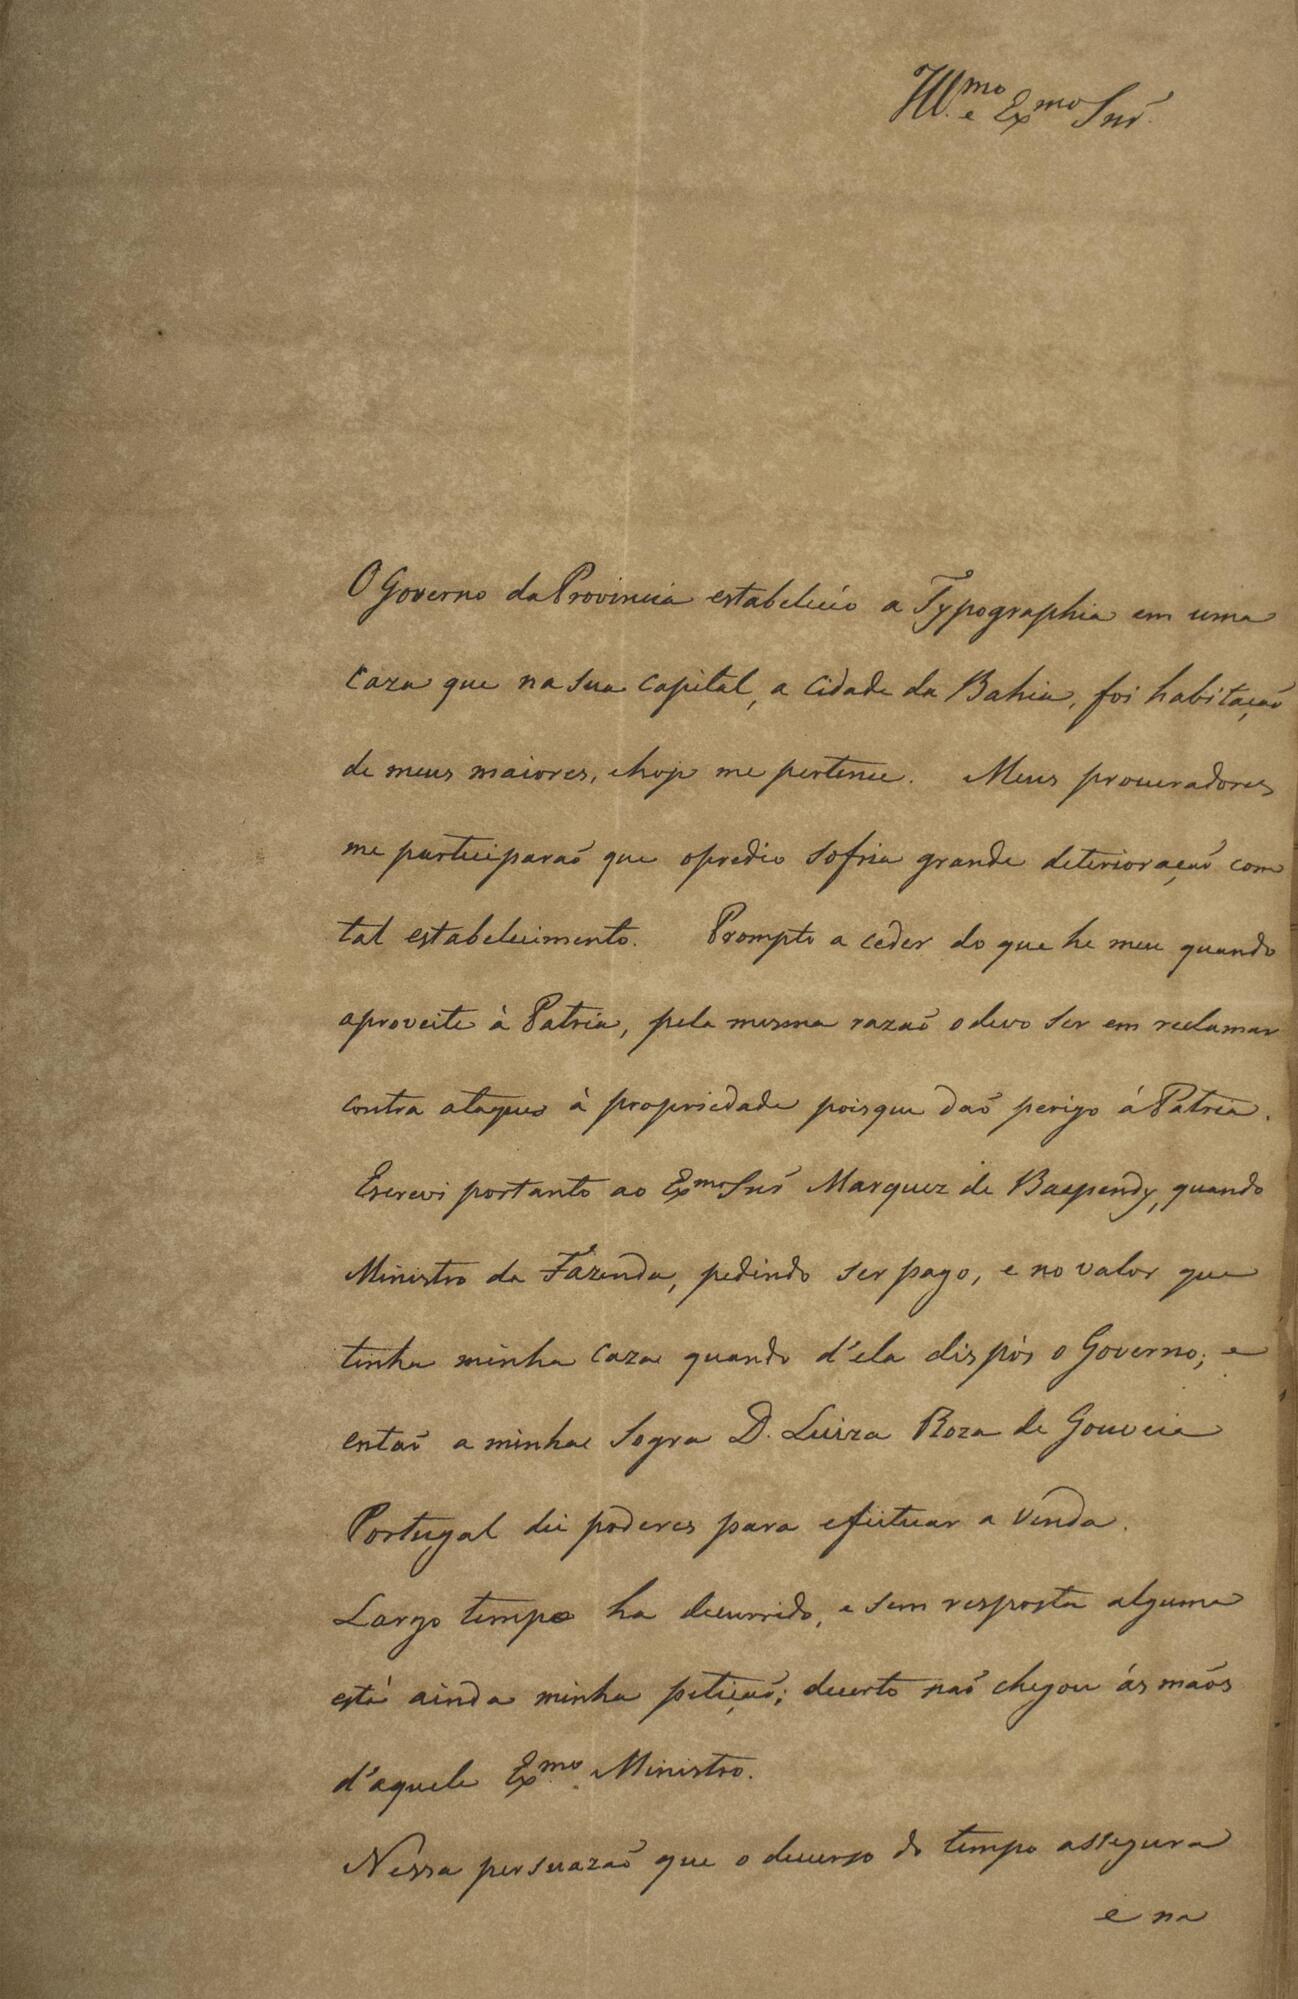 Ill.mo e Ex.mo Snr.
O Governo da Provincia estabeleceo a Typographia em uma
Caza que na sua capital, a Cidade da Bahia, foi habitaçaõ
de meus maiores, e hoje me pertence. Meus procuradores
me participaraõ que o predio sofria grande deterioraçaõ com
tal estabelecimento. Prompto a ceder do que he meu quando
aproveite à Patria, pela mesma razaõ o devo ser em reclamar
contra ataques à propriedade poisque daõ perigo á Patria.
Escrevi portanto ao Ex.mo Snr Marquez de Baependy, quando
Ministro da Fazenda, pedindo ser pago, e no valor que
tinha minha Caza quando d'ela dispòs o Governo; e
entaõ a minha Sogra D. Luiza Roza de Gouveia
Portugal dei poderes para efeituar a venda.
Largo tempo ha decurrido, e sem resposta alguma
està ainda minha petiçaõ; decerto naõ chegou ás maõs
d'aquele Ex.mo Ministro.
Nessa persuazaõ que o decurso do tempo assegura
e na